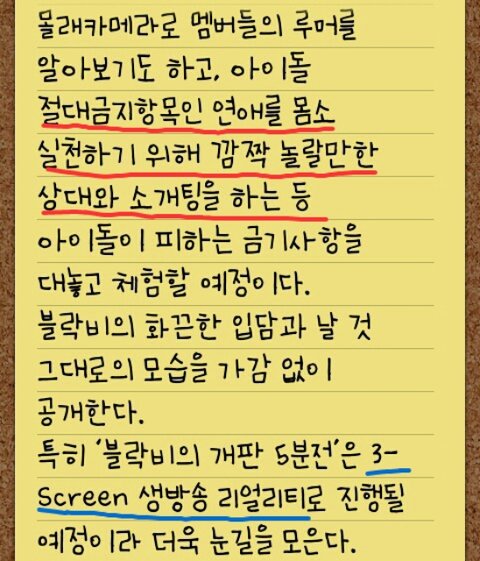 몰래카메라로 멤버들의 루머를
알아보기도 하고, 아이돌
절대금지항목인 연애를 몸소
실천하기 위해 깜짝 놀랄만한
상대와 소개팅을 하는 등
아이돌이 피하는 금기사항을
대놓고 체험할 예정이다.
블락비의 화끈한 입담과 날 것
그대로의 모습을 가감 없이
공개한다.
특히 '블락비의 개판 5분전'은 3-
Screen 생방송 리얼리티로 진행될
예정이라 더욱 눈길을 모은다.